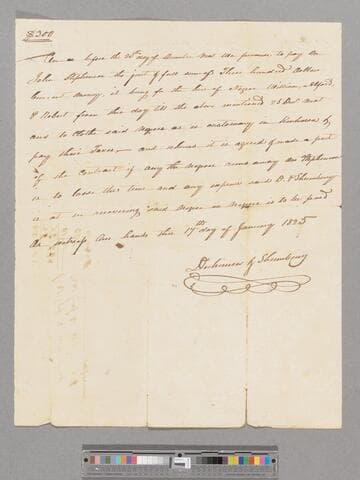 $300
On or before the 25th day of December next we promise to pay Mr
John Stephenson the just & full sum of Three hundred Dollars
Current money, it being for the hire of Negroes William, Alfred,
& Robert from this day till the above mentioned 25 Dec next
and to Clothe said Negroes as is customary in Kentucky &
pay their Taxes, and whereas it is agreed & made a part
of the Contract if any the Negroes runs away Mr Stephenson
is to loose the time and any expense said D. & Shrewsbury
is at in recovering said Negroe or Negroes is to be paid
As witness our hands this 17th day of January 1825
& Shrewsbury